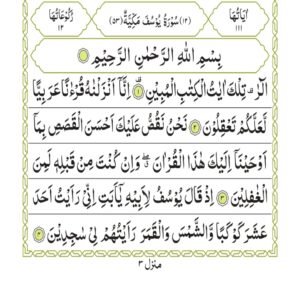 اٰیَاتُهَا ١١١ (١٢) سُوْرَةُ یُوْسُفَ مَكِّیَّةٌ (٥٣) رُكُوْعَاتُهَا ١٢
بِسْمِ اللّٰهِ الرَّحْمٰنِ الرَّحِیْمِ
الٓرٰ تِلْكَ اٰیٰتُ الْكِتٰبِ الْمُبِیْنِ ۝١ اِنَّاۤ اَنْزَلْنٰهُ قُرْءٰنًا عَرَبِیًّا
لَّعَلَّكُمْ تَعْقِلُوْنَ ۝٢ نَحْنُ نَقُصُّ عَلَیْكَ اَحْسَنَ الْقَصَصِ بِمَاۤ
اَوْحَیْنَاۤ اِلَیْكَ هٰذَا الْقُرْاٰنَ ۖۗ وَاِنْ كُنْتَ مِنْ قَبْلِهٖ لَمِنَ
الْغٰفِلِیْنَ ۝٣ اِذْ قَالَ یُوْسُفُ لِاَبِیْهِ یٰۤاَبَتِ اِنِّیْ رَاَیْتُ اَحَدَ
عَشَرَ كَوْكَبًا وَّالشَّمْسَ وَالْقَمَرَ رَاَیْتُهُمْ لِیْ سٰجِدِیْنَ ۝٤
منزل ٣